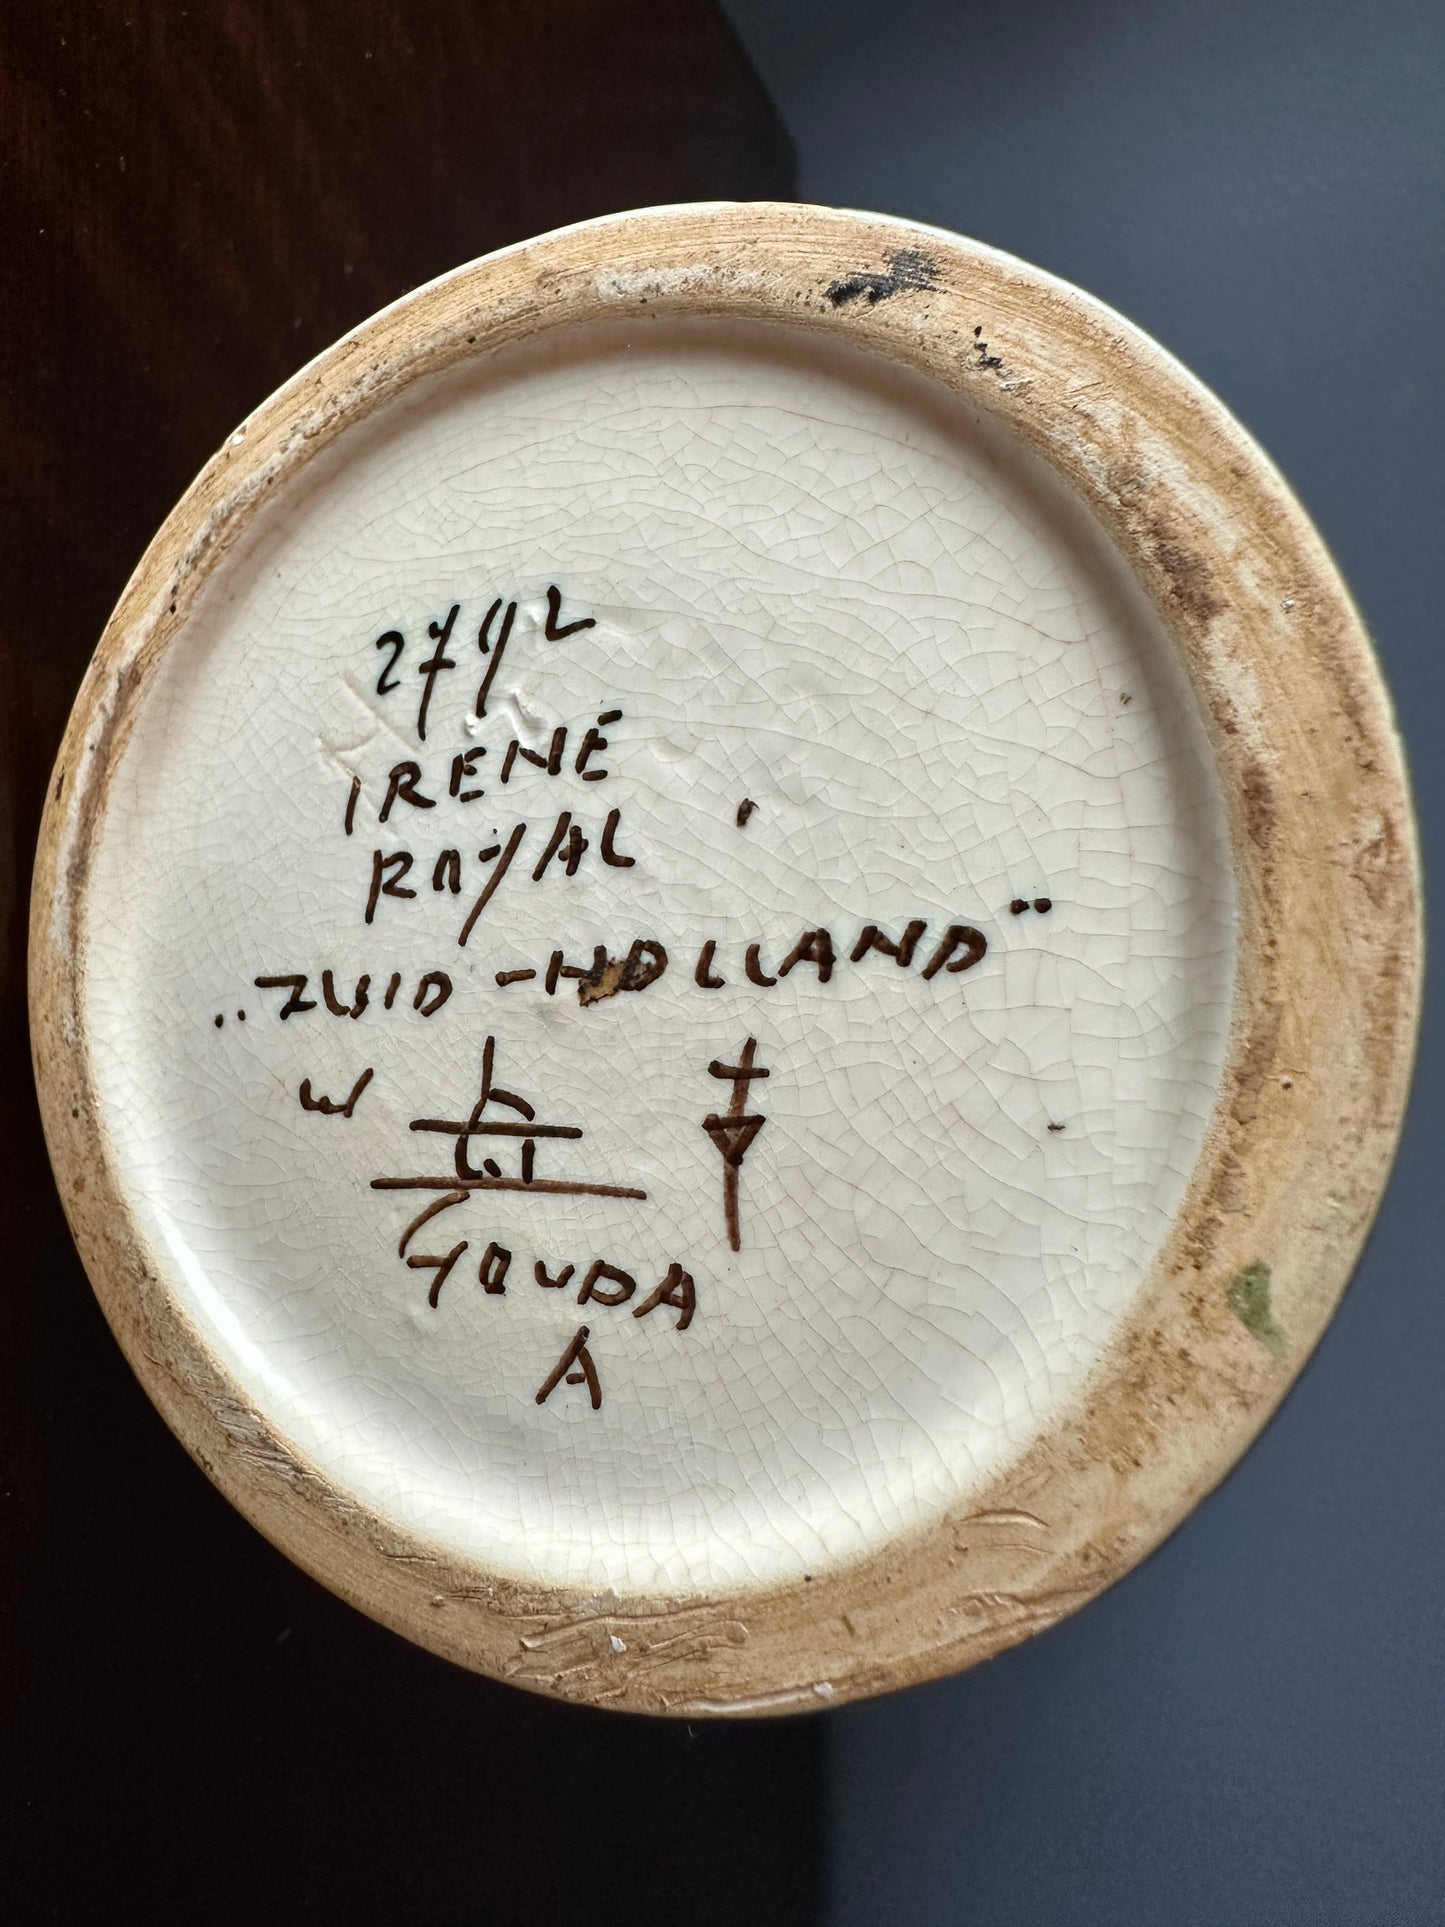 IRENE
ROYAL
„ZUID-HOLLAND"
W
GOUDA
A